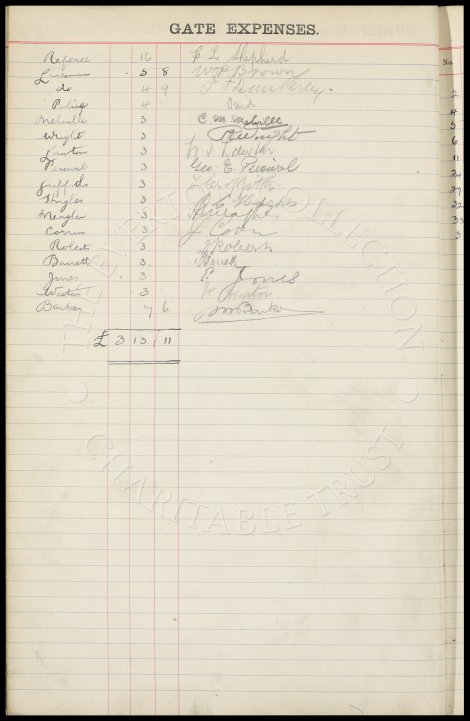 GATE EXPENSES.
No.
Referee 16 E L Shepherd
Linesman 5 8 Brown
do. 4 9
Police 4 Paid
Melville 3 C M Melville
Wright 3 Wright
Lawton 3
Percival 3 Geo E. Percival
Griffiths 3
Hughes 3 Hughes
Meagher 3
Corrin 3 J Corrin
Roberts 3 J Roberts
Barrett 3
Jones 3 E Jones
Weston 3
Barker 7 6 Barker
£ 3 13 11
THE EVERTON COLLECTION
CHARITABLE TRUST